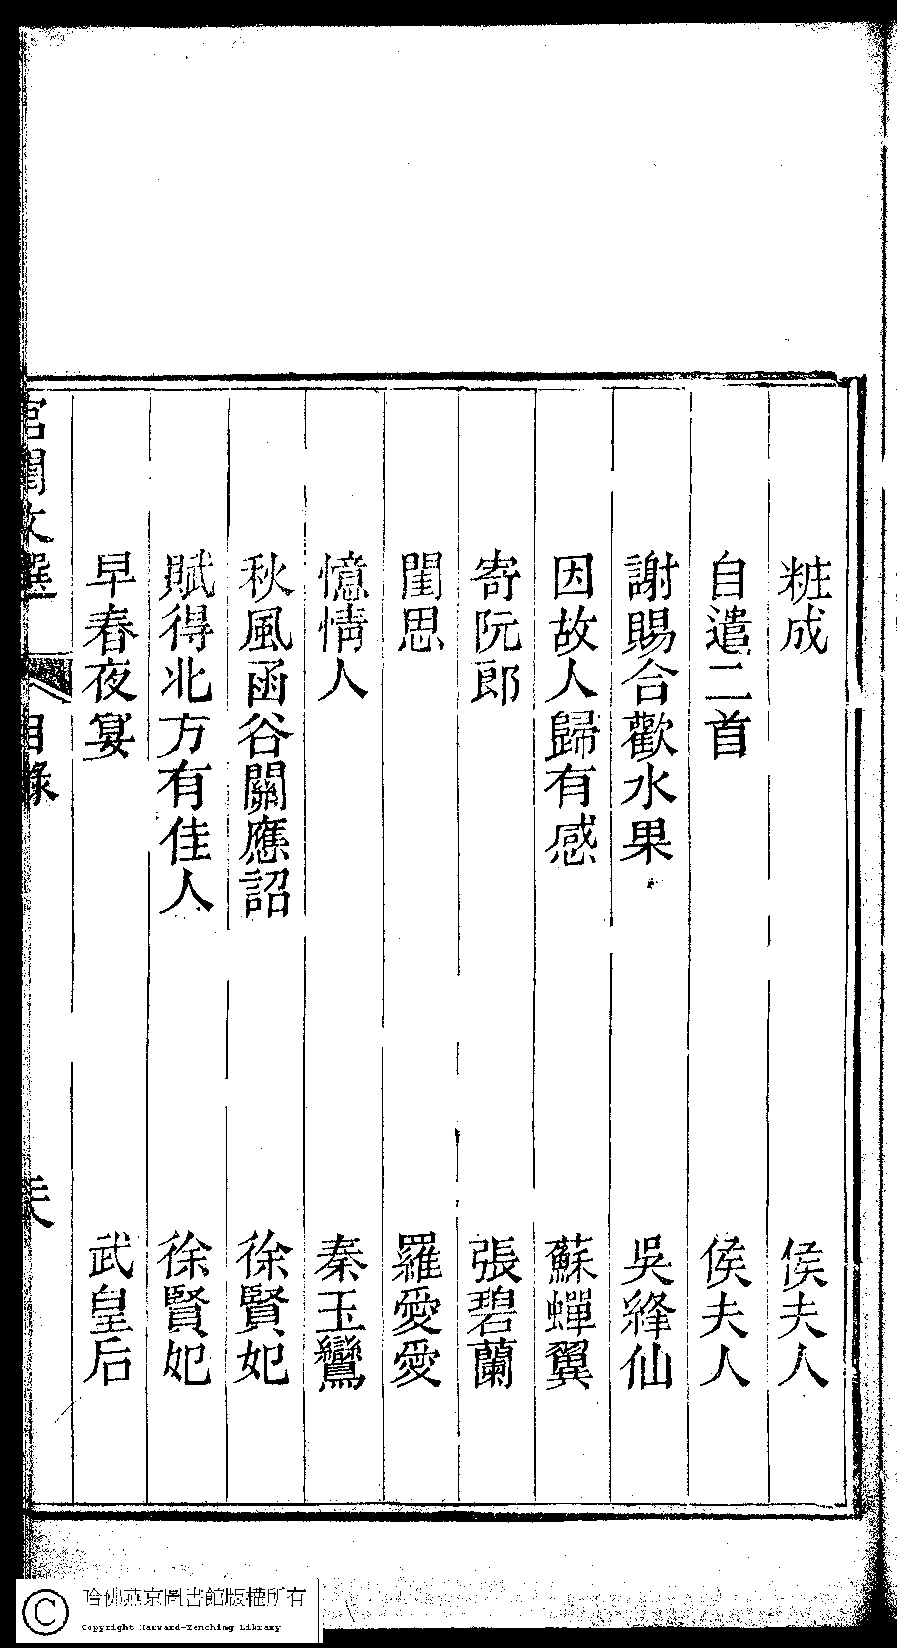 粧成 侯夫人
自遣二首 侯夫人
謝賜合歡水果 吳絳仙
因故人歸有感 蘇蟬翼
寄阮郎 張碧蘭
閨思 羅愛愛
憶情人 秦玉鸞
秋風函谷關應詔 徐賢妃
賦得北方有佳人 徐賢妃
早春夜宴 武皇后
宮閨文選 目錄
哈佛燕京圖書館版權所有
Copyright Harvard-Yenching Library